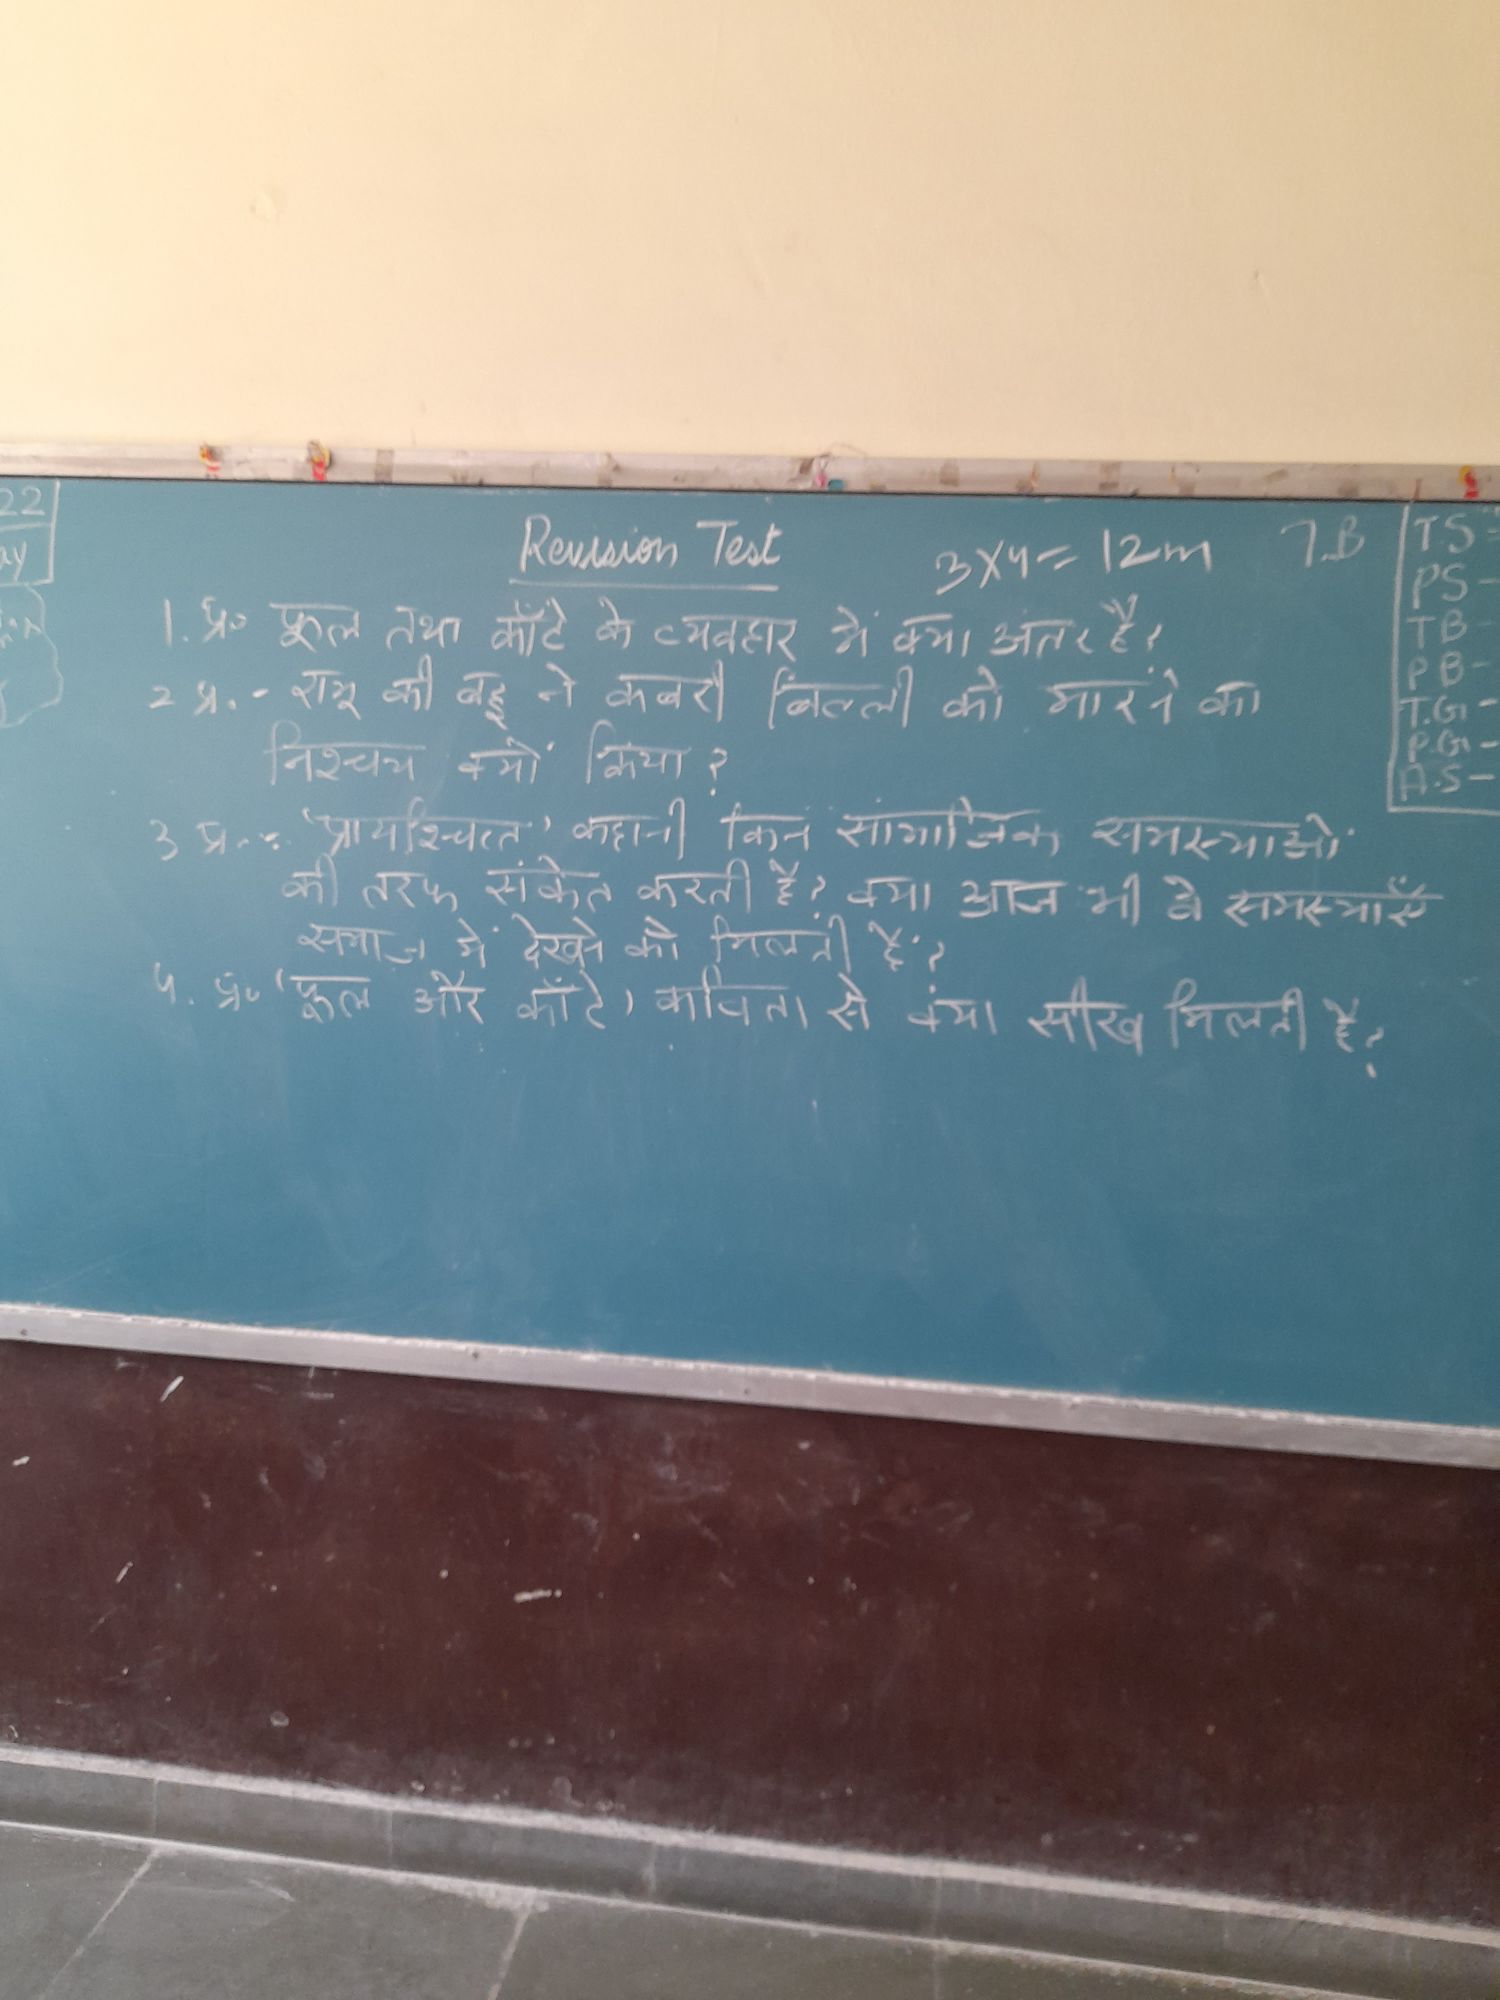 22
ay
Revision Test 3x4= 12m 7.B
1. प्र० फूल तथा काँटे के व्यवहार में क्या अंतर है?
2 प्र. - रामू की बहू ने कबरी बिल्ली को मारने का
निश्चय क्यों किया?
3 प्र. - 'प्रायश्चित्त' कहानी किन सामाजिक समस्याओं
की तरफ संकेत करती है? क्या आज भी वे समस्याएँ
समाज में देखने को मिलती हैं?
4. प्र० 'फूल और काँटे' कविता से क्या सीख मिलती है?
TS=
PS-
TB-
PB-
T.G-
P.G-
A.S-